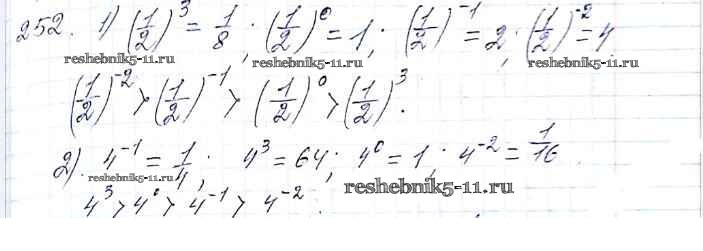 252. 1) (1/2)^3 = 1/8; (1/2)^0 = 1; (1/2)^-1 = 2; (1/2)^-2 = 4
reshebnik5-11.ru reshebnik5-11.ru reshebnik5-11.ru
(1/2)^-2 > (1/2)^-1 > (1/2)^0 > (1/2)^3.
2). 4^-1 = 1/4; 4^3 = 64; 4^0 = 1; 4^-2 = 1/16
reshebnik5-11.ru reshebnik5-11.ru
4^3 > 4^0 > 4^-1 > 4^-2.